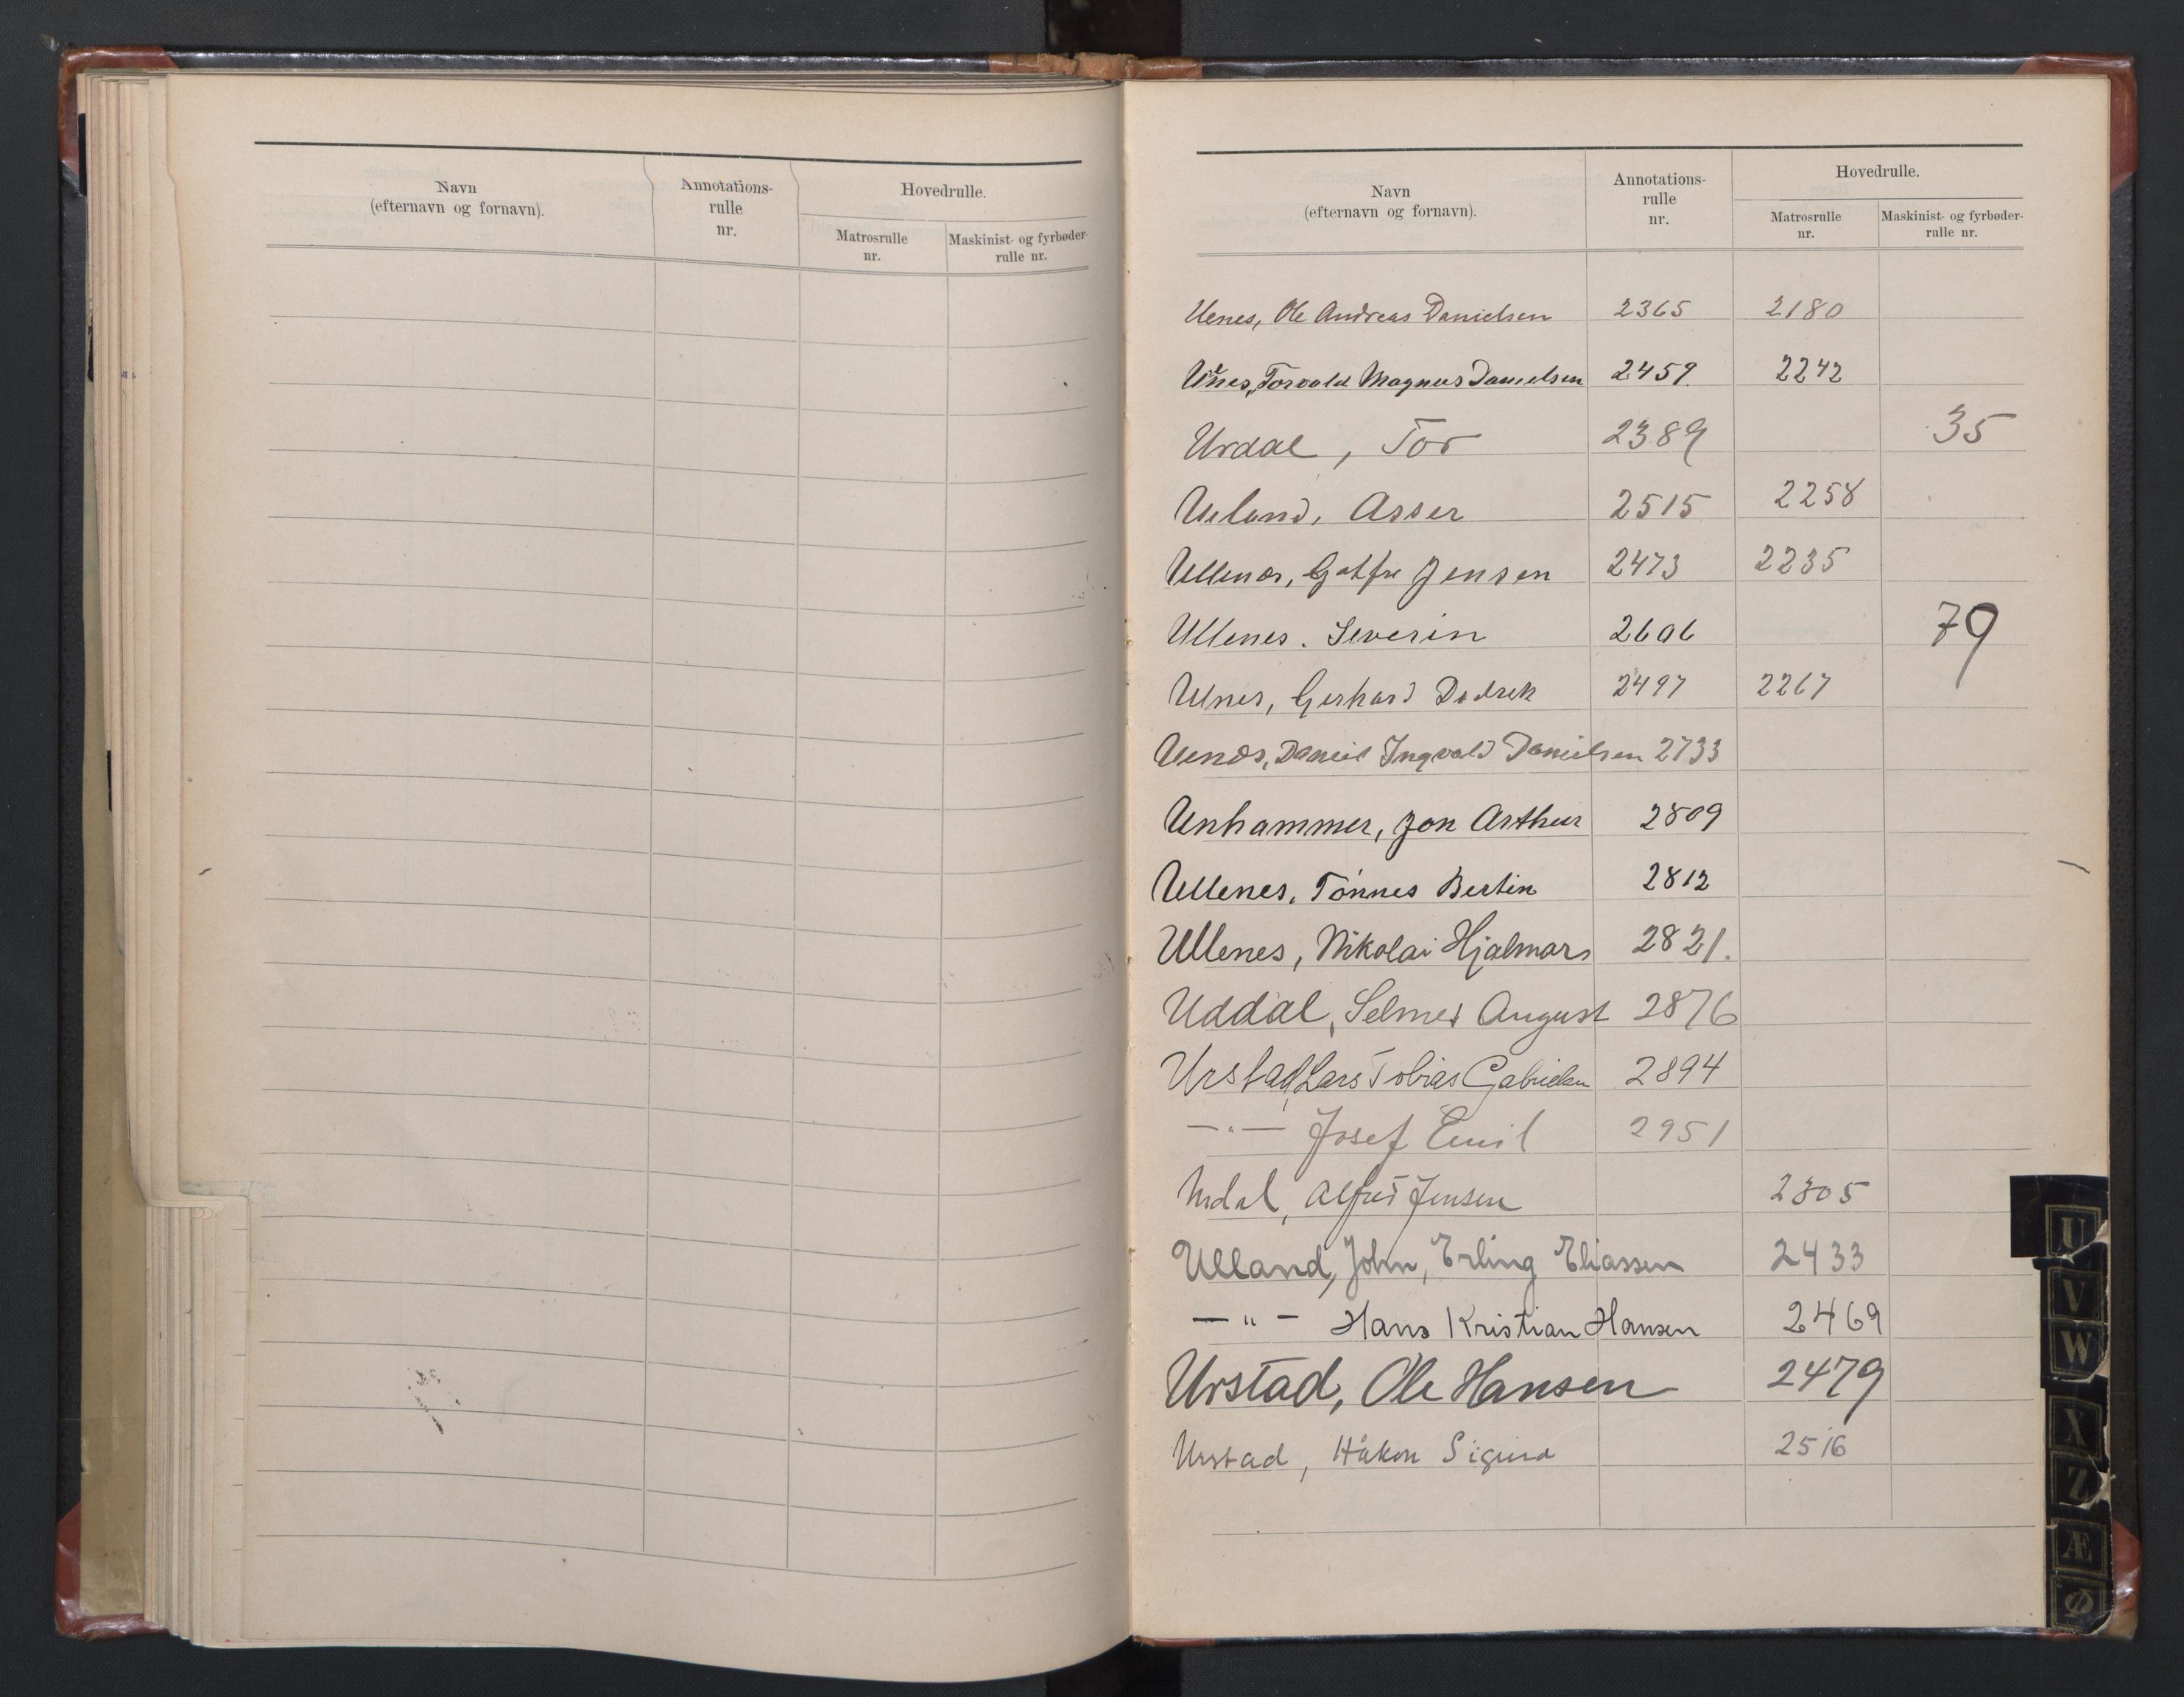 Navn
(efternavn og fornavn).
Annotations-
rulle
nr.
Hovedrulle.
Matrosrulle
nr.
Maskinist- og fyrbøder-
rulle nr.
Navn
(efternavn og fornavn).
Annotations-
rulle
nr.
Hovedrulle.
Matrosrulle
nr.
Maskinist- og fyrbøder-
rulle nr.
Uenes, Ole Andreas Danielsen 2365 2180
Torvald Magnus Danielsen 2459 2242
Urdal, Tor 2389 35
Ueland, Asser 2515 2258
Jensen 2473 2235
Ullenes. Severin 2606 79
Gerhard Didrek 2497 2267
Uenes, Daniel Ingvald Danielsen 2733
Unhammer, Jon Arthur 2809
Ullenes, Tønnes Bertin 2812
Ullenes, Nikolai Hjalmars 2821.
Uddal, Selmer August 2876
Urstad, Lars Tobias Gabrielsen 2894
—"— Josef Emil 2951
Alfred Jensen 2305
Ulland, John, Erling Eliassen 2433
—"— Hans Kristian Hansen 2469
Urstad, Ole Hansen 2479
Urstad, Håkon Sigurd 2516
U
V
W
X
Z
Æ
Ø